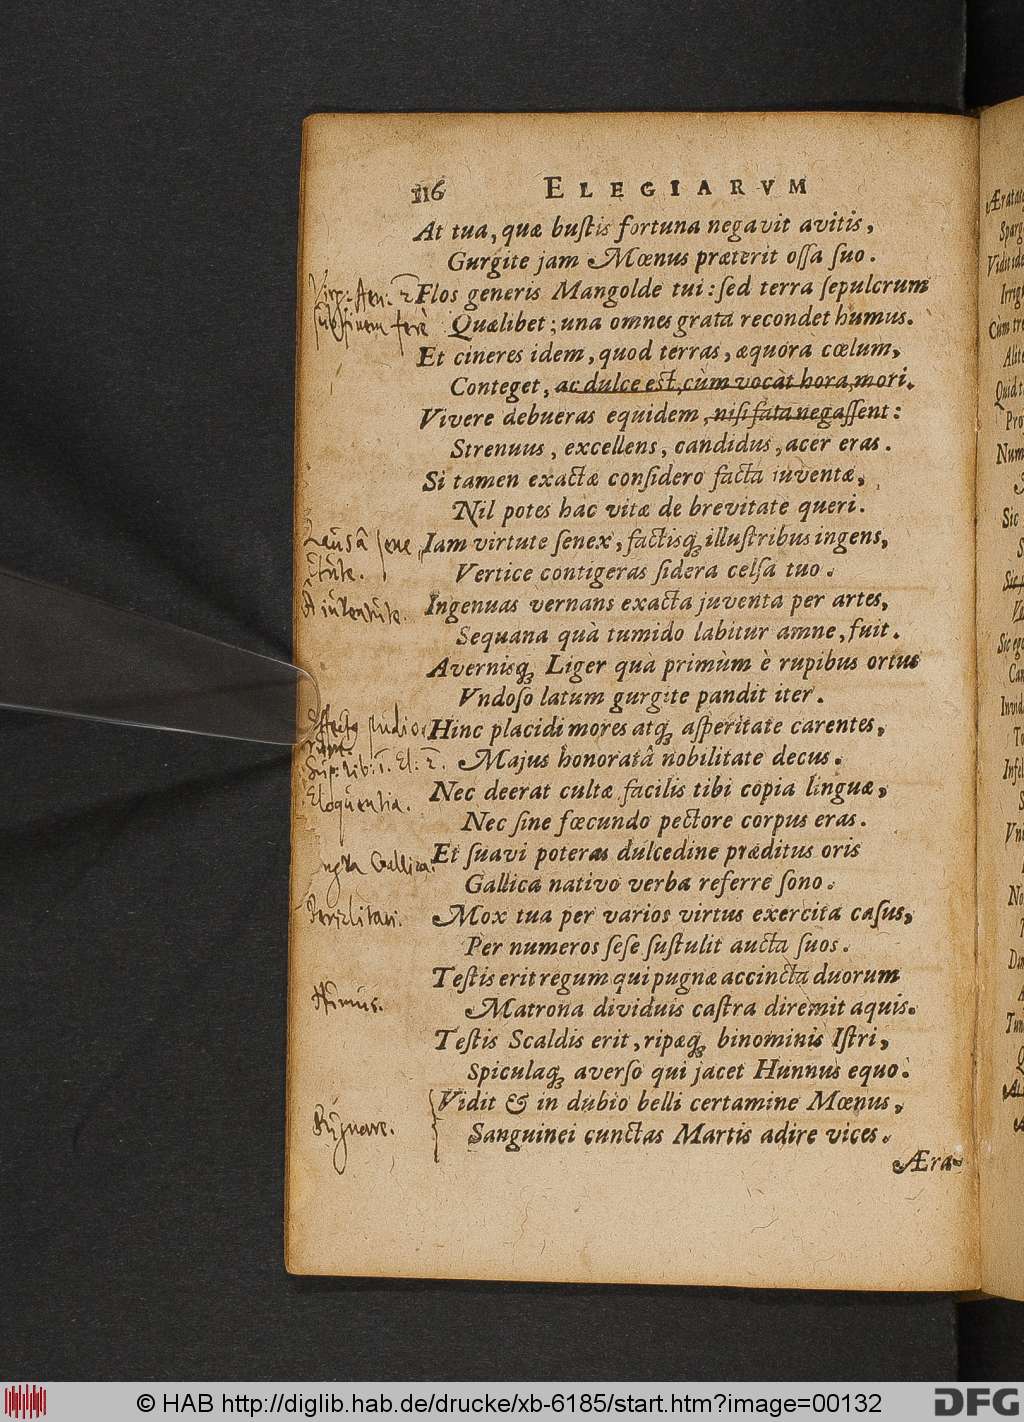 116 ELEGIARVM
At tua, quæ buſtis fortuna negavit avitis,
Gurgite jam Mœnus præterit oſſa ſuo.
Virg: Aen: 2
Flos generis Mangolde tui: ſed terra ſepulcrum
ferè
Quælibet; una omnes grata recondet humus.
Et cineres idem, quod terras, æquora cœlum,
Conteget, ac dulce est, cùm vocat hora, mori.
Vivere debueras equidem, niſi fata negaſſent:
Strenuus, excellens, candidus, acer eras.
Si tamen exactæ conſidero facta iuventæ,
Nil potes hac vitæ de brevitate queri.
Iam virtute ſenex, factisq́ illuſtribus ingens,
Vertice contigeras ſidera celſa tuo.
A iuventute.
Ingenuas vernans exacta juventa per artes,
Sequana quà tumido labitur amne, fuit.
Avernisq́ Liger quà primùm è rupibus ortus
Vndoſo latum gurgite pandit iter.
Hinc placidi mores atq́ aſperitate carentes,
Sup: lib: 1. El: 2.
Majus honoratâ nobilitate decus.
Eloquentia.
Nec deerat cultæ facilis tibi copia linguæ,
Nec ſine fœcundo pectore corpus eras.
Gallica.
Et ſuavi poteras dulcedine præditus oris
Gallica nativo verba referre ſono.
Mox tua per varios virtus exercita caſus,
Per numeros ſeſe ſuſtulit aucta ſuos.
Teſtis erit regum qui pugnæ accincta duorum
Matrona dividuis caſtra diremit aquis.
Teſtis Scaldis erit, ripæq́ binominis Iſtri,
Spiculaq́ averſo qui jacet Hunnus equo.
Vidit & in dubio belli certamine Mœnus,
Sanguinei cunctas Martis adire vices.
Æra-
© HAB http://diglib.hab.de/drucke/xb-6185/start.htm?image=00132
DFG